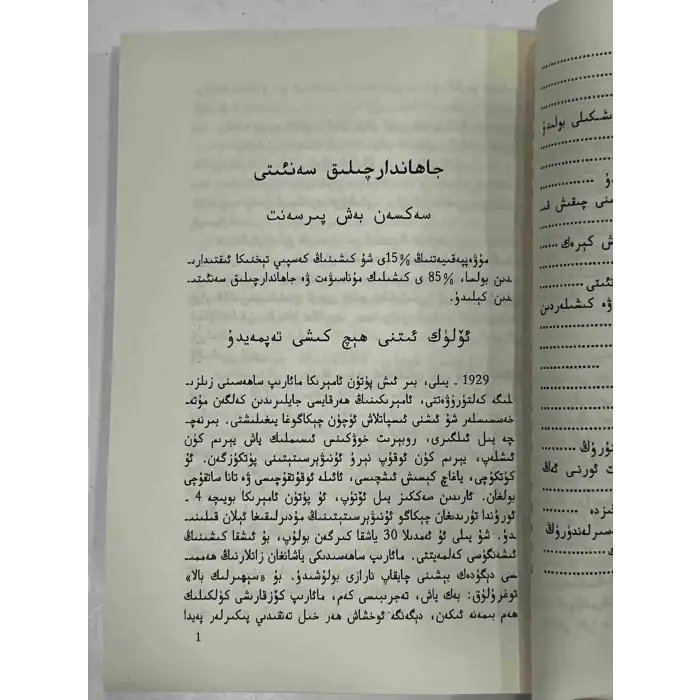 جاھاندارچىلىق سەنئىتى
سەكسەن بەش پىرسەنت
مۇۋەپپەقىيەتنىڭ 15%ى شۇ كىشىنىڭ كەسپىي تېخنىكا ئىقتىدارىـ
دىن بولسا، 85% ى كىشىلىك مۇناسىۋەت ۋە جاھاندارچىلىق سەنئىتىـ
دىن كېلىدۇ.
ئۆلۈك ئىتنى ھېچ كىشى تەپمەيدۇ
1929 ـ يىلى، بىر ئىش پۈتۈن ئامېرىكا مائارىپ ساھەسىنى زىلزىـ
لىگە كەلتۈرۈۋەتتى، ئامېرىكىنىڭ ھەرقايسى جايلىرىدىن كەلگەن مۇتەـ
خەسسىسلەر شۇ ئىشنى ئىسپاتلاش ئۈچۈن چىكاگوغا يىغىلىشتى. بىرنەچـ
چە يىل ئىلگىرى، روبېرت خوۋكىنس ئىسىملىك ياش يېرىم كۈن
ئىشلەپ، يېرىم كۈن ئوقۇپ نېرۇ ئۇنىۋېرسىتېتىنى پۈتكۈزگەن. ئۇ
كۈتكۈچى، ياغاچ كېسىش ئىشچىسى، ئائىلە ئوقۇتقۇچىسى ۋە تانا ساتقۇچى
بولغان. ئارىدىن سەككىز يىل ئۆتۈپ، ئۇ پۈتۈن ئامېرىكا بويىچە 4 ـ
ئورۇندا تۇرىدىغان چىكاگو ئۇنىۋېرسىتېتىنىڭ مۇدىرلىقىغا ئېلان قىلىنىـ
دۇ. شۇ يىلى ئۇ ئەمدىلا 30 ياشقا كىرگەن بولۇپ، بۇ ئىشقا كىشىنىڭ
ئىشەنگۈسى كەلمەيتتى. مائارىپ ساھەسىدىكى ياشانغان زاتلارنىڭ ھەممىـ
سى دېگۈدەك بېشىنى چايقاپ نارازى بولۇشىدۇ. بۇ «سېھىرلىك بالا»
توغرۇلۇق: بەك ياش، تەجرىبىسى كەم، مائارىپ كۆزقارىشى كۈلكىلىك
ھەم بىمەنە ئىكەن، دېگەنگە ئوخشاش ھەر خىل تەنقىدىي پىكىرلەر پەيدا
1
ىشكىلى بولىدۇ
ۇ
ىنى چىقىش قىـ
ش كېرەك
ئىتى
ۋە كىشىلەردىن
تۇرۇڭ
ت ئورنى ئەڭ
ىڭىزدە
ىسىرلەندۈرۈڭ